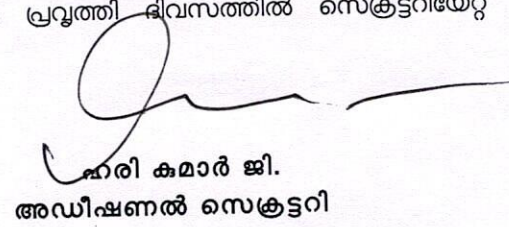 പ്രവൃത്തി ദിവസത്തിൽ സെക്രട്ടറിയേറ്റ്
ഹരി കുമാർ ജി.
അഡീഷണൽ സെക്രട്ടറി